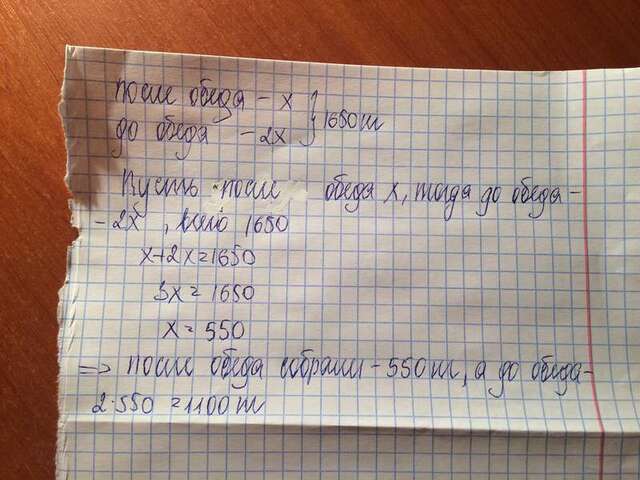 После обеда - x } 1650 т
до обеда - 2x
Пусть после обеда x, тогда до обеда -
- 2x, всего 1650
x+2x=1650
3x = 1650
x = 550
=> после обеда собрали - 550 т, а до обеда -
2·550 = 1100 т